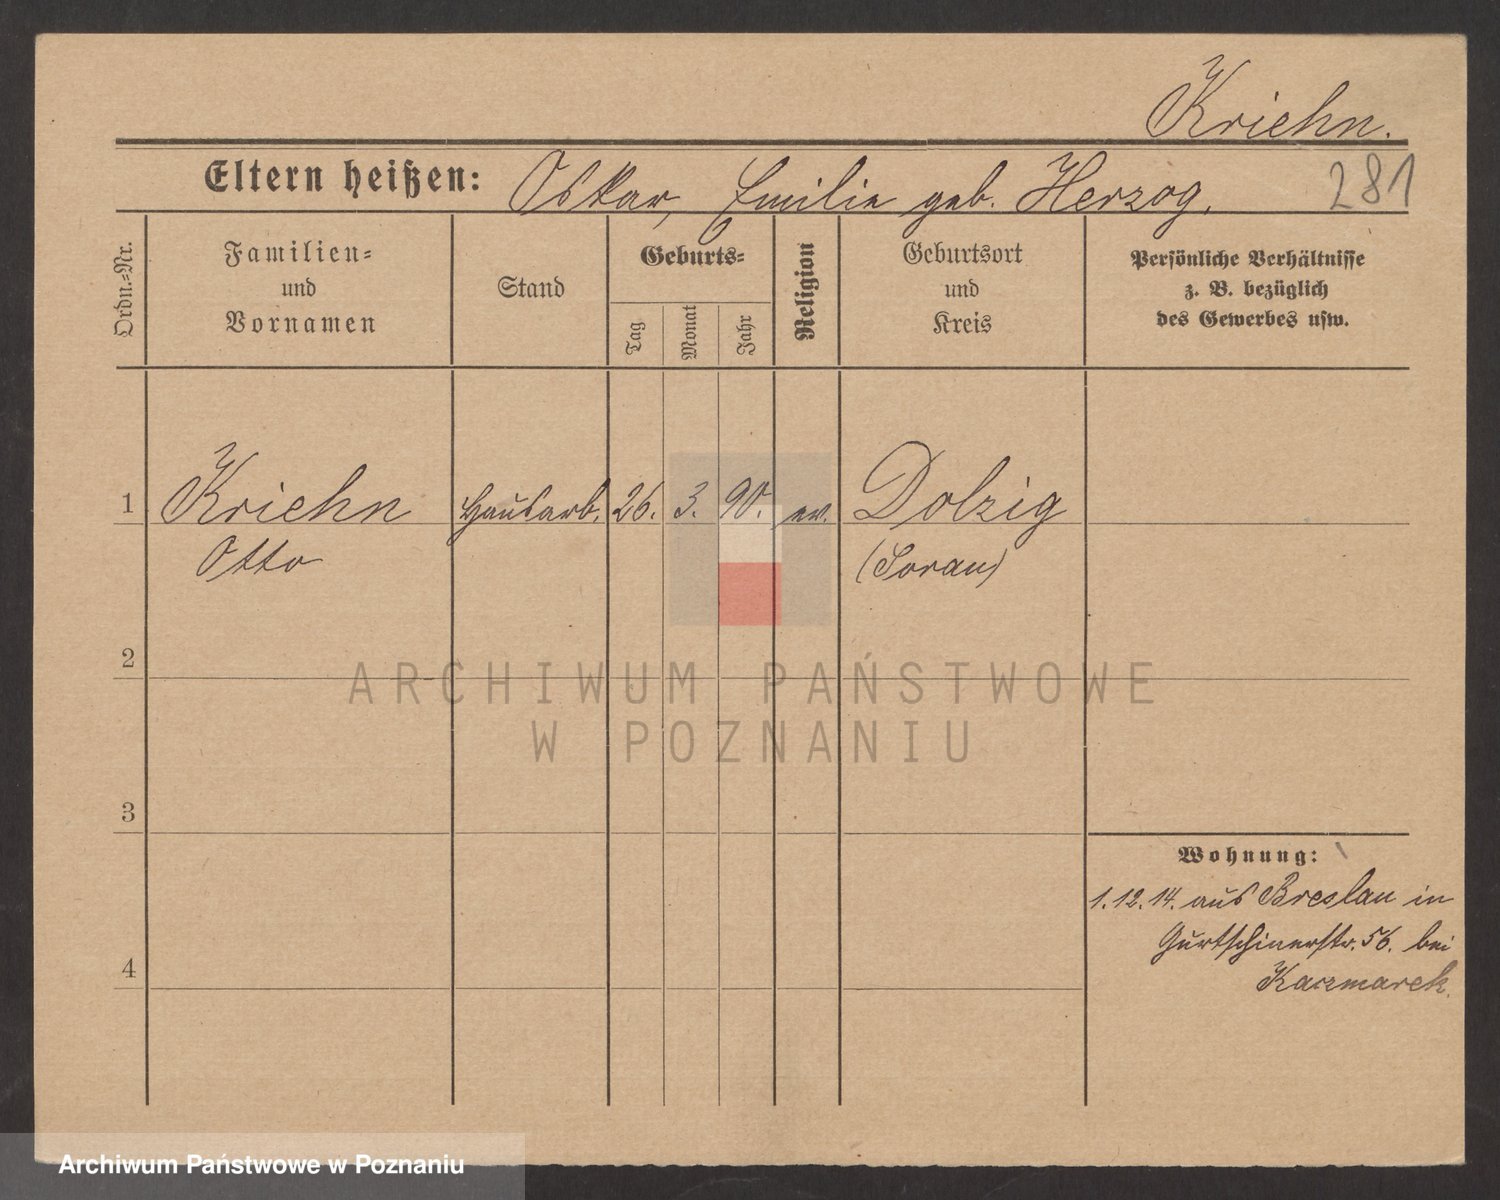 Kriehn.
Eltern heißen: Oskar, Emilie geb. Herzog.
281
Ordn.-Nr.
Familien-
und
Vornamen
Stand
Geburts-
Tag
Monat
Jahr
Religion
Geburtsort
und
Kreis
Persönliche Verhältnisse
z. B. bezüglich
des Gewerbes usw.
1 Kriehn Hausarb. 26. 3. 90. ev. Dolzig
Otto (Sorau)
2
ARCHIWUM PAŃSTWOWE
W POZNANIU
3
Wohnung:
1.12.14. aus Breslau in
Gurtschinerstr. 56. bei
Kaczmarek.
4
Archiwum Państwowe w Poznaniu